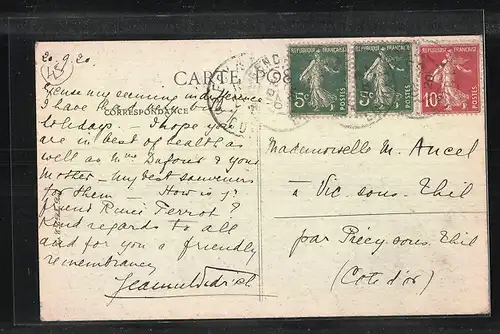 20.9.20.
CARTE POS
CORRESPONDANCE
Excuse my seeming indifference
I have had
holidays. – I hope you
are in best of health as
well as Mme Dufour & your
mother – My best souvenirs
for them – How is yr
friend Renée Ferrot?
Kind regards to all
and for you a friendly
remembrance,
REPUBLIQUE FRANÇAISE
5c
POSTES
REPUBLIQUE FRANÇAISE
5c
POSTES
REPUBLIQUE FRANÇAISE
10c
POSTES
Mademoiselle M. Ancel
à Vic-sous-Thil
par Précy-sous-Thil
(Cote d'or)